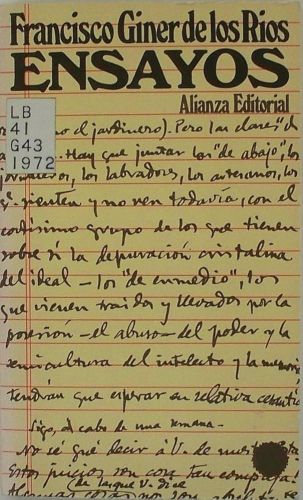 Francisco Giner de los Rios
ENSAYOS
Alianza Editorial
LB
41
G43
1972
el jardinero). Pero las clases "de
Hay que juntar los "de abajo", los
los labradores, los artesanos, los
sienten y no ven todavía, con el
cortísimo grupo de los que tienen
sobre sí la depuración cristalina
del ideal — los "de enmedio", los
que vienen traidos y llevados por la
posesión — el abuso — del poder y la
semicultura del intelecto y la memoria
tendrán que esperar en relativa cesantía
Sigo, al cabo de una semana.—
No sé qué decir á V. de nuestra
Estos juicios son cosa tan
(de las que V. dice